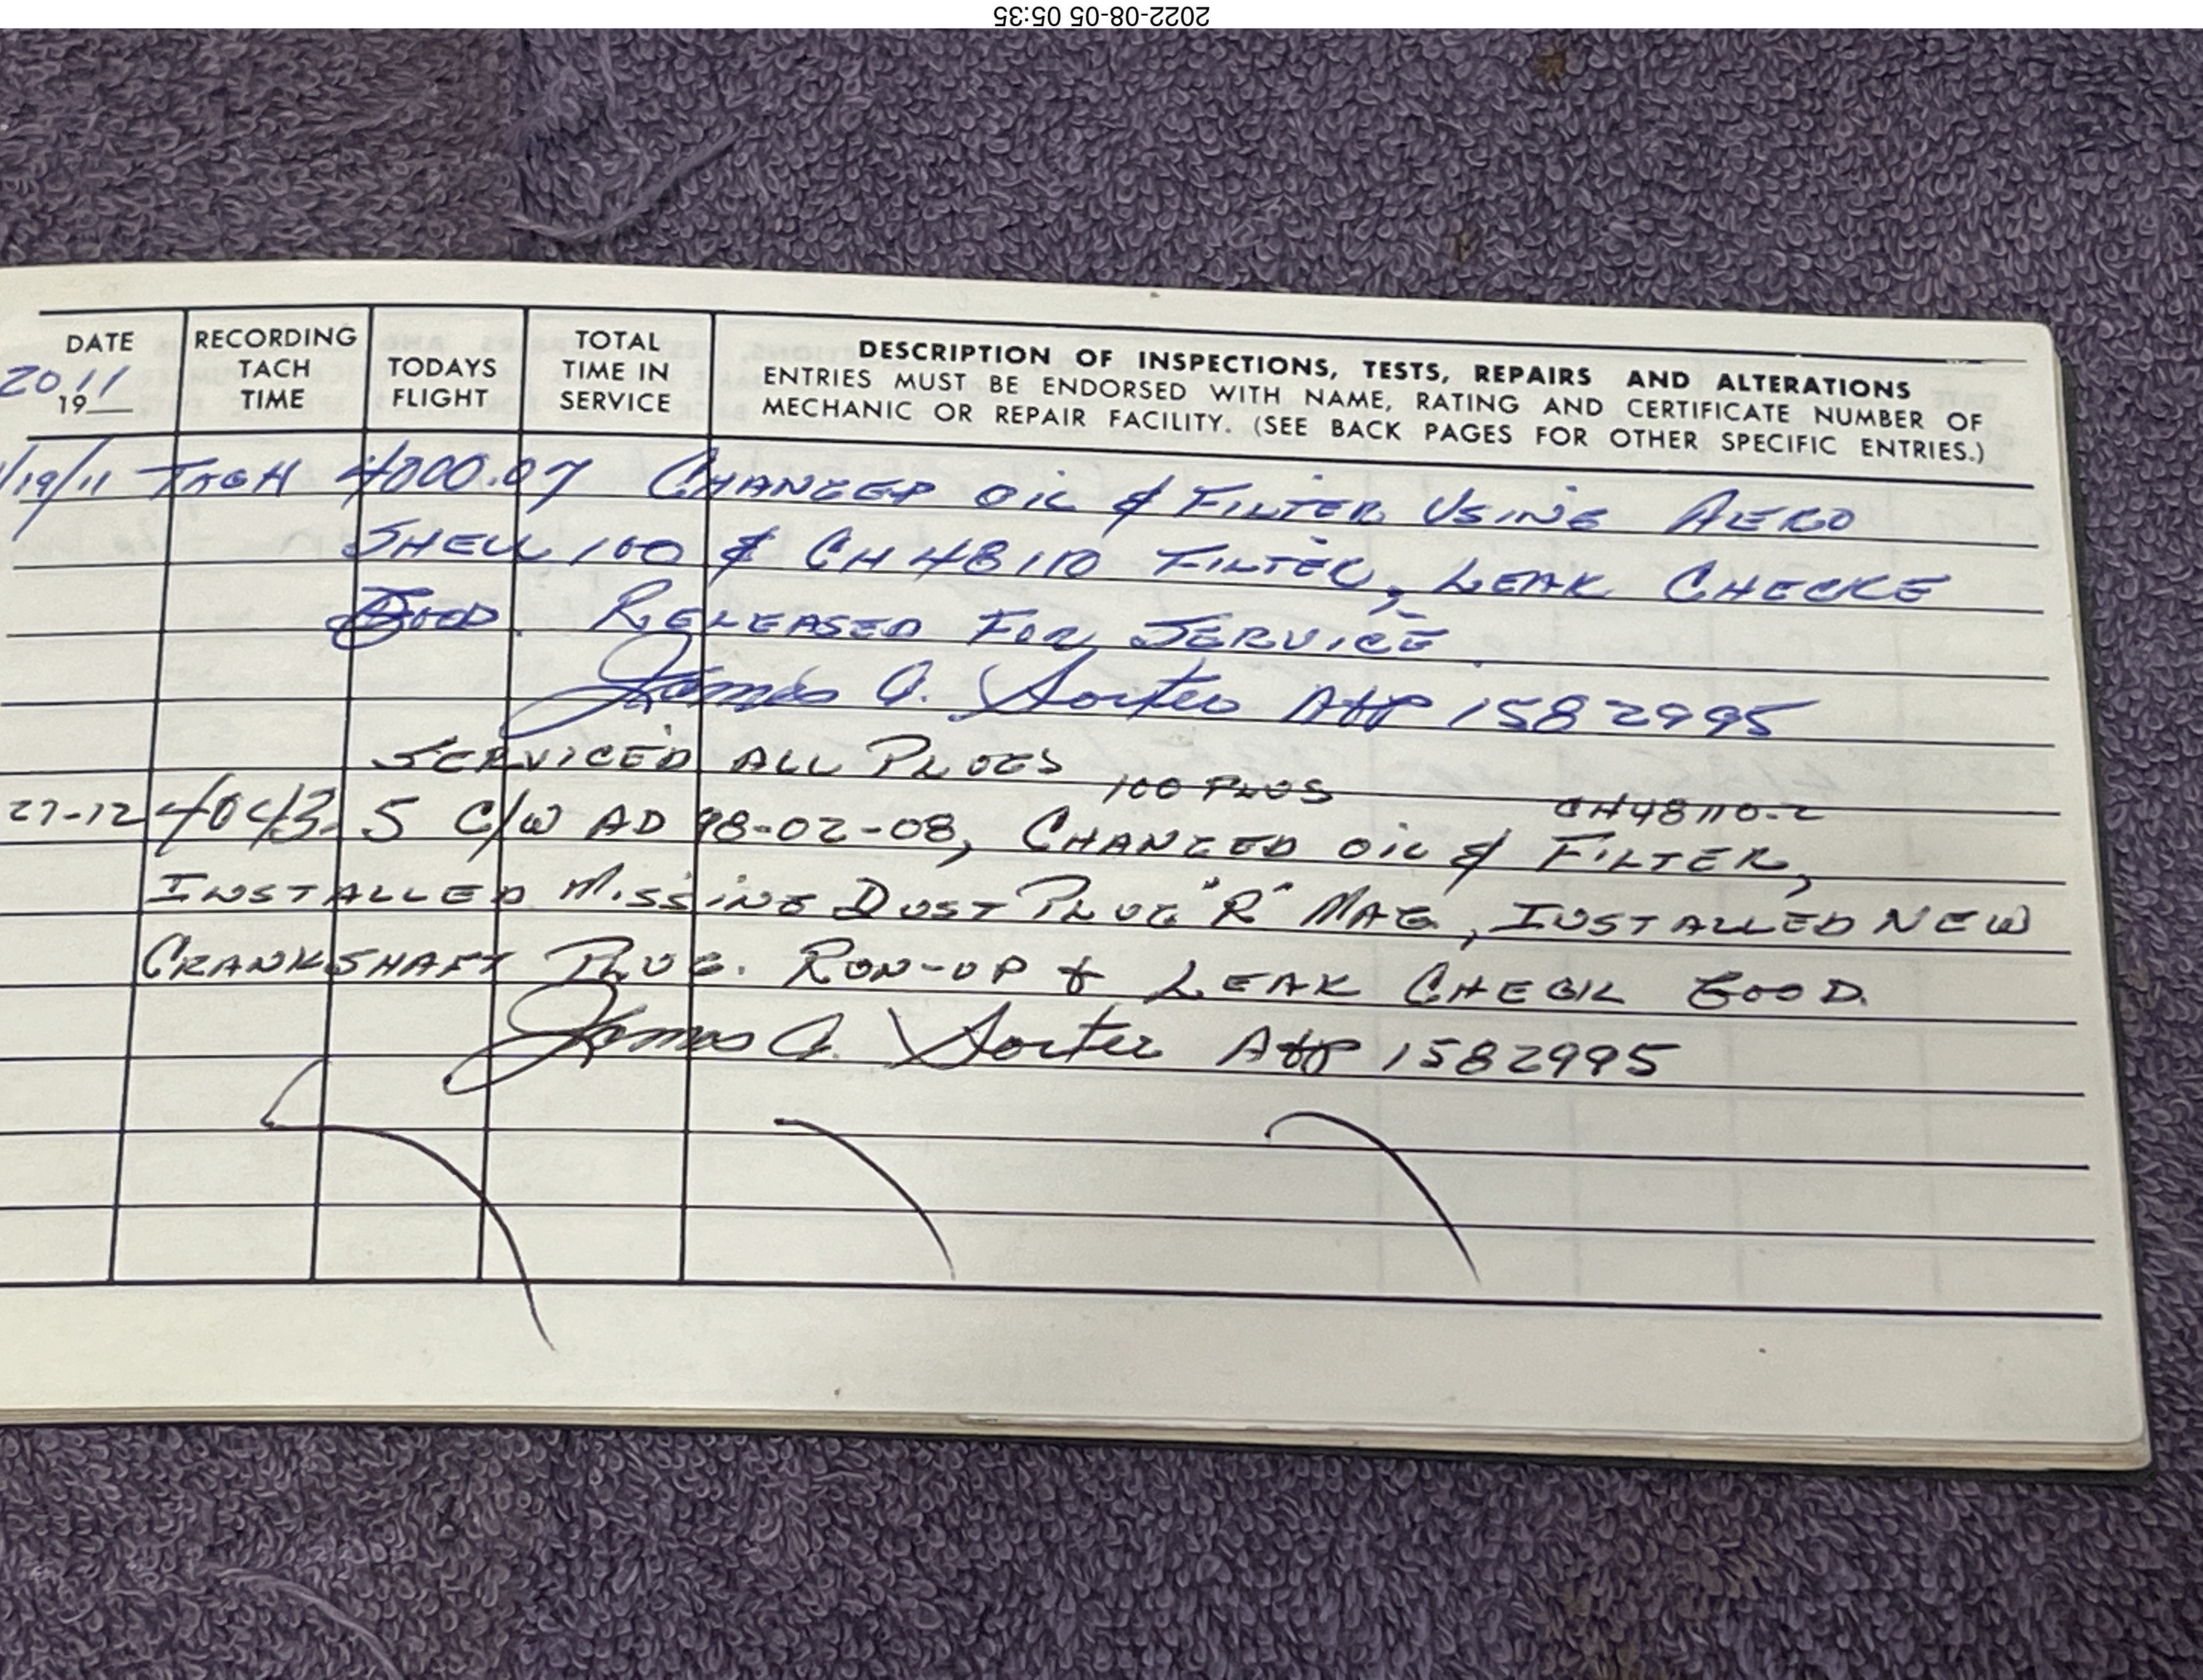 2022-08-05 05:35
DATE
2011
19__
RECORDING
TACH
TIME
TODAYS
FLIGHT
TOTAL
TIME IN
SERVICE
DESCRIPTION OF INSPECTIONS, TESTS, REPAIRS AND ALTERATIONS
ENTRIES MUST BE ENDORSED WITH NAME, RATING AND CERTIFICATE NUMBER OF
MECHANIC OR REPAIR FACILITY. (SEE BACK PAGES FOR OTHER SPECIFIC ENTRIES.)
/19/11 TACH 4000.07 CHANGED OIL & FILTER USING AERO
SHELL 100 & CH48110 FILTER, LEAK CHECKE
GOOD. RELEASED FOR SERVICE.
James A. Sorter A&P 1582995
SERVICED ALL PLUGS 100 PLUS CH48110-2
27-12 4043.5 C/W AD 98-02-08, CHANGED OIL & FILTER,
INSTALLED MISSING DUST PLUG "R" MAG, INSTALLED NEW
CRANKSHAFT PLUG. RUN-UP & LEAK CHECK GOOD.
James A. Sorter A&P 1582995